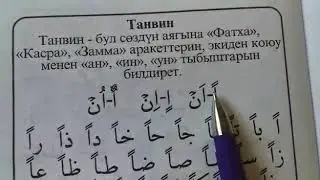 Танвин
Танвин - бул сөздүн аягына «Фатха»,
«Касра», «Замма» аракеттерин, экиден коюу
менен «ан», «ин», «ун» тыбыштарын
билдирет.
اً-اَنْ اٍ-اِنْ اٌ-اُنْ
اً باً تاً ثاً جاً حاً خاً داً ذاً راً
زاً ساً شاً صاً ضاً طاً ظاً عاً